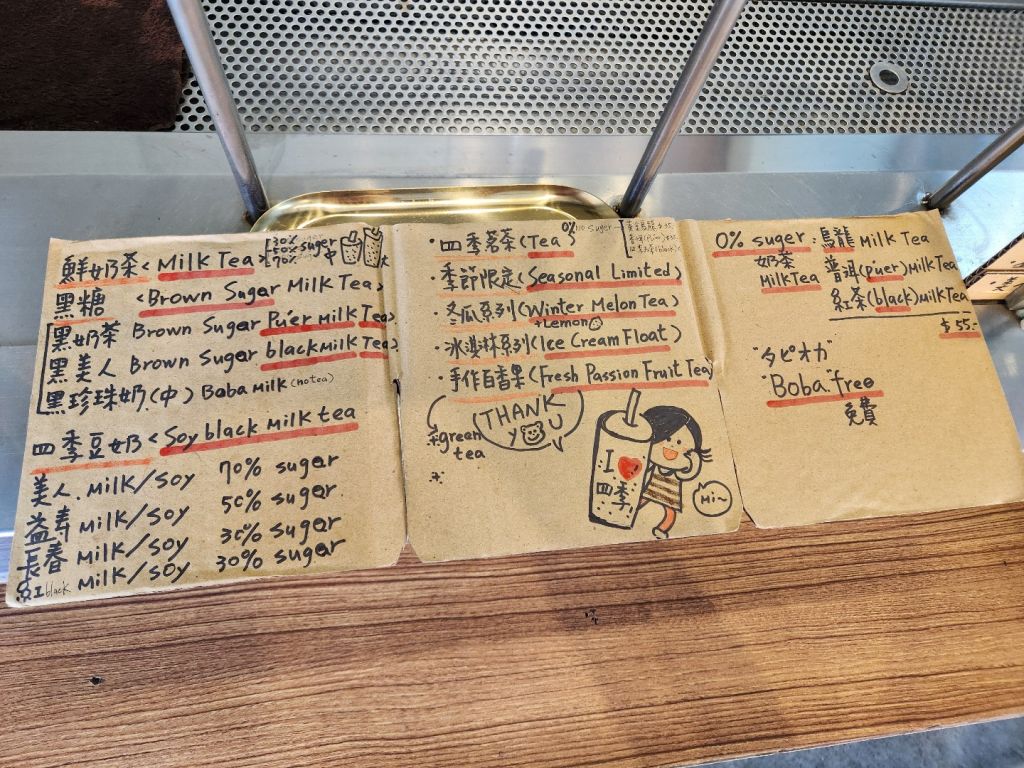 鮮奶茶<Milk Tea>
30%
50% sugar
70%
中
大
黑糖 <Brown Sugar Milk Tea>
黑奶茶 Brown Sugar Pu'er Milk Tea
黑美人 Brown Sugar black Milk Tea
黑珍珠奶(中) Boba Milk (no tea)
四季豆奶<Soy black milk tea
美人 Milk/Soy 70% sugar
益壽 Milk/Soy 50% sugar
長春 Milk/Soy 30% sugar
紅black Milk/Soy 30% sugar
·四季茗茶(Tea) 0% no sugar
·季節限定(Seasonal Limited)
·冬瓜系列(Winter Melon Tea)
+Lemon
·冰淇淋系列(Ice Cream Float)
·手作百香果(Fresh Passion Fruit Tea)
+green
tea
THANK
YOU
I
四季
Hi~
0% suger: 烏龍 Milk Tea
奶茶 普洱(pu'er) Milk Tea
Milk Tea 紅茶(black) Milk Tea
$55.-
"タピオカ"
"Boba" free
免費